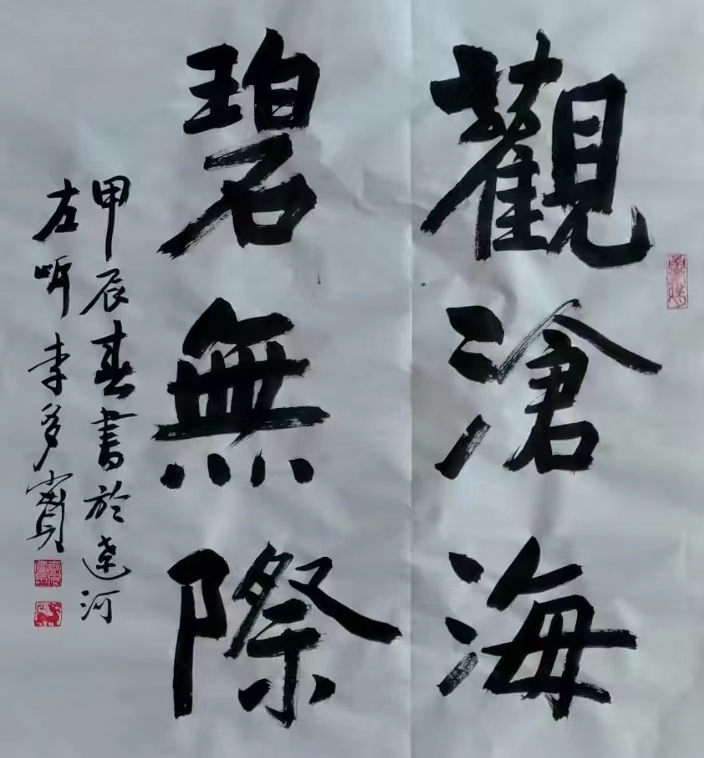 觀滄海
碧無際
甲辰春書於遼河
左岸李多寶